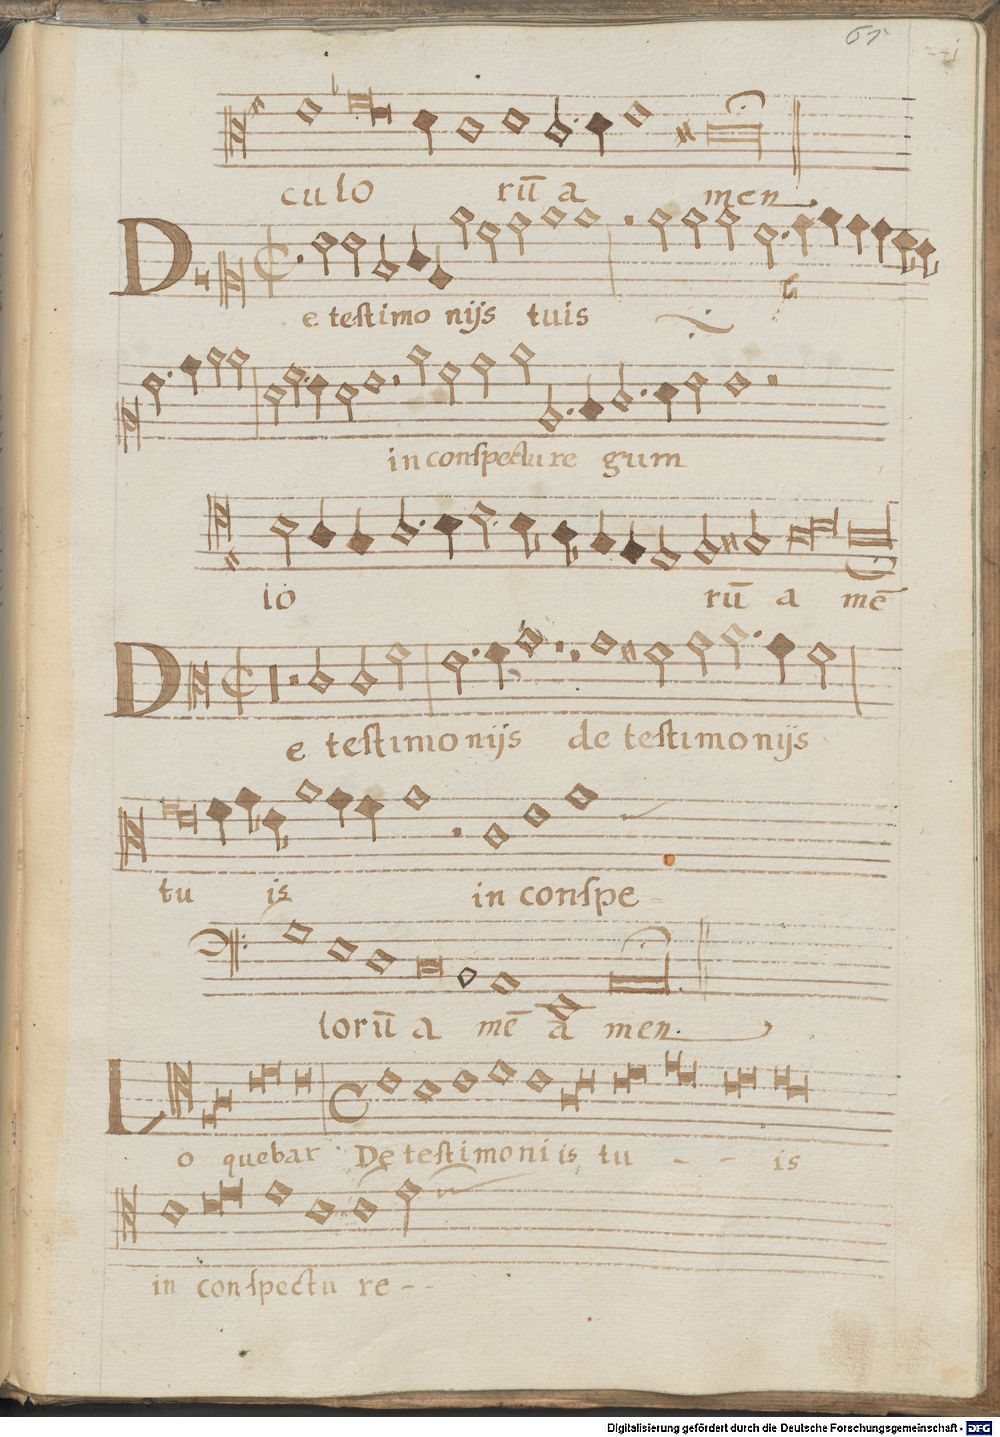 61
culo rū a men
De testimonijs tuis
in conspectu re gum
lo rū a mē
De testimonijs de testimonijs
tu is in conspe-
lorū a mē a men.
Loquebar De testimoniis tu - - is
in conspectu re--
Digitalisierung gefördert durch die Deutsche Forschungsgemeinschaft - DFG